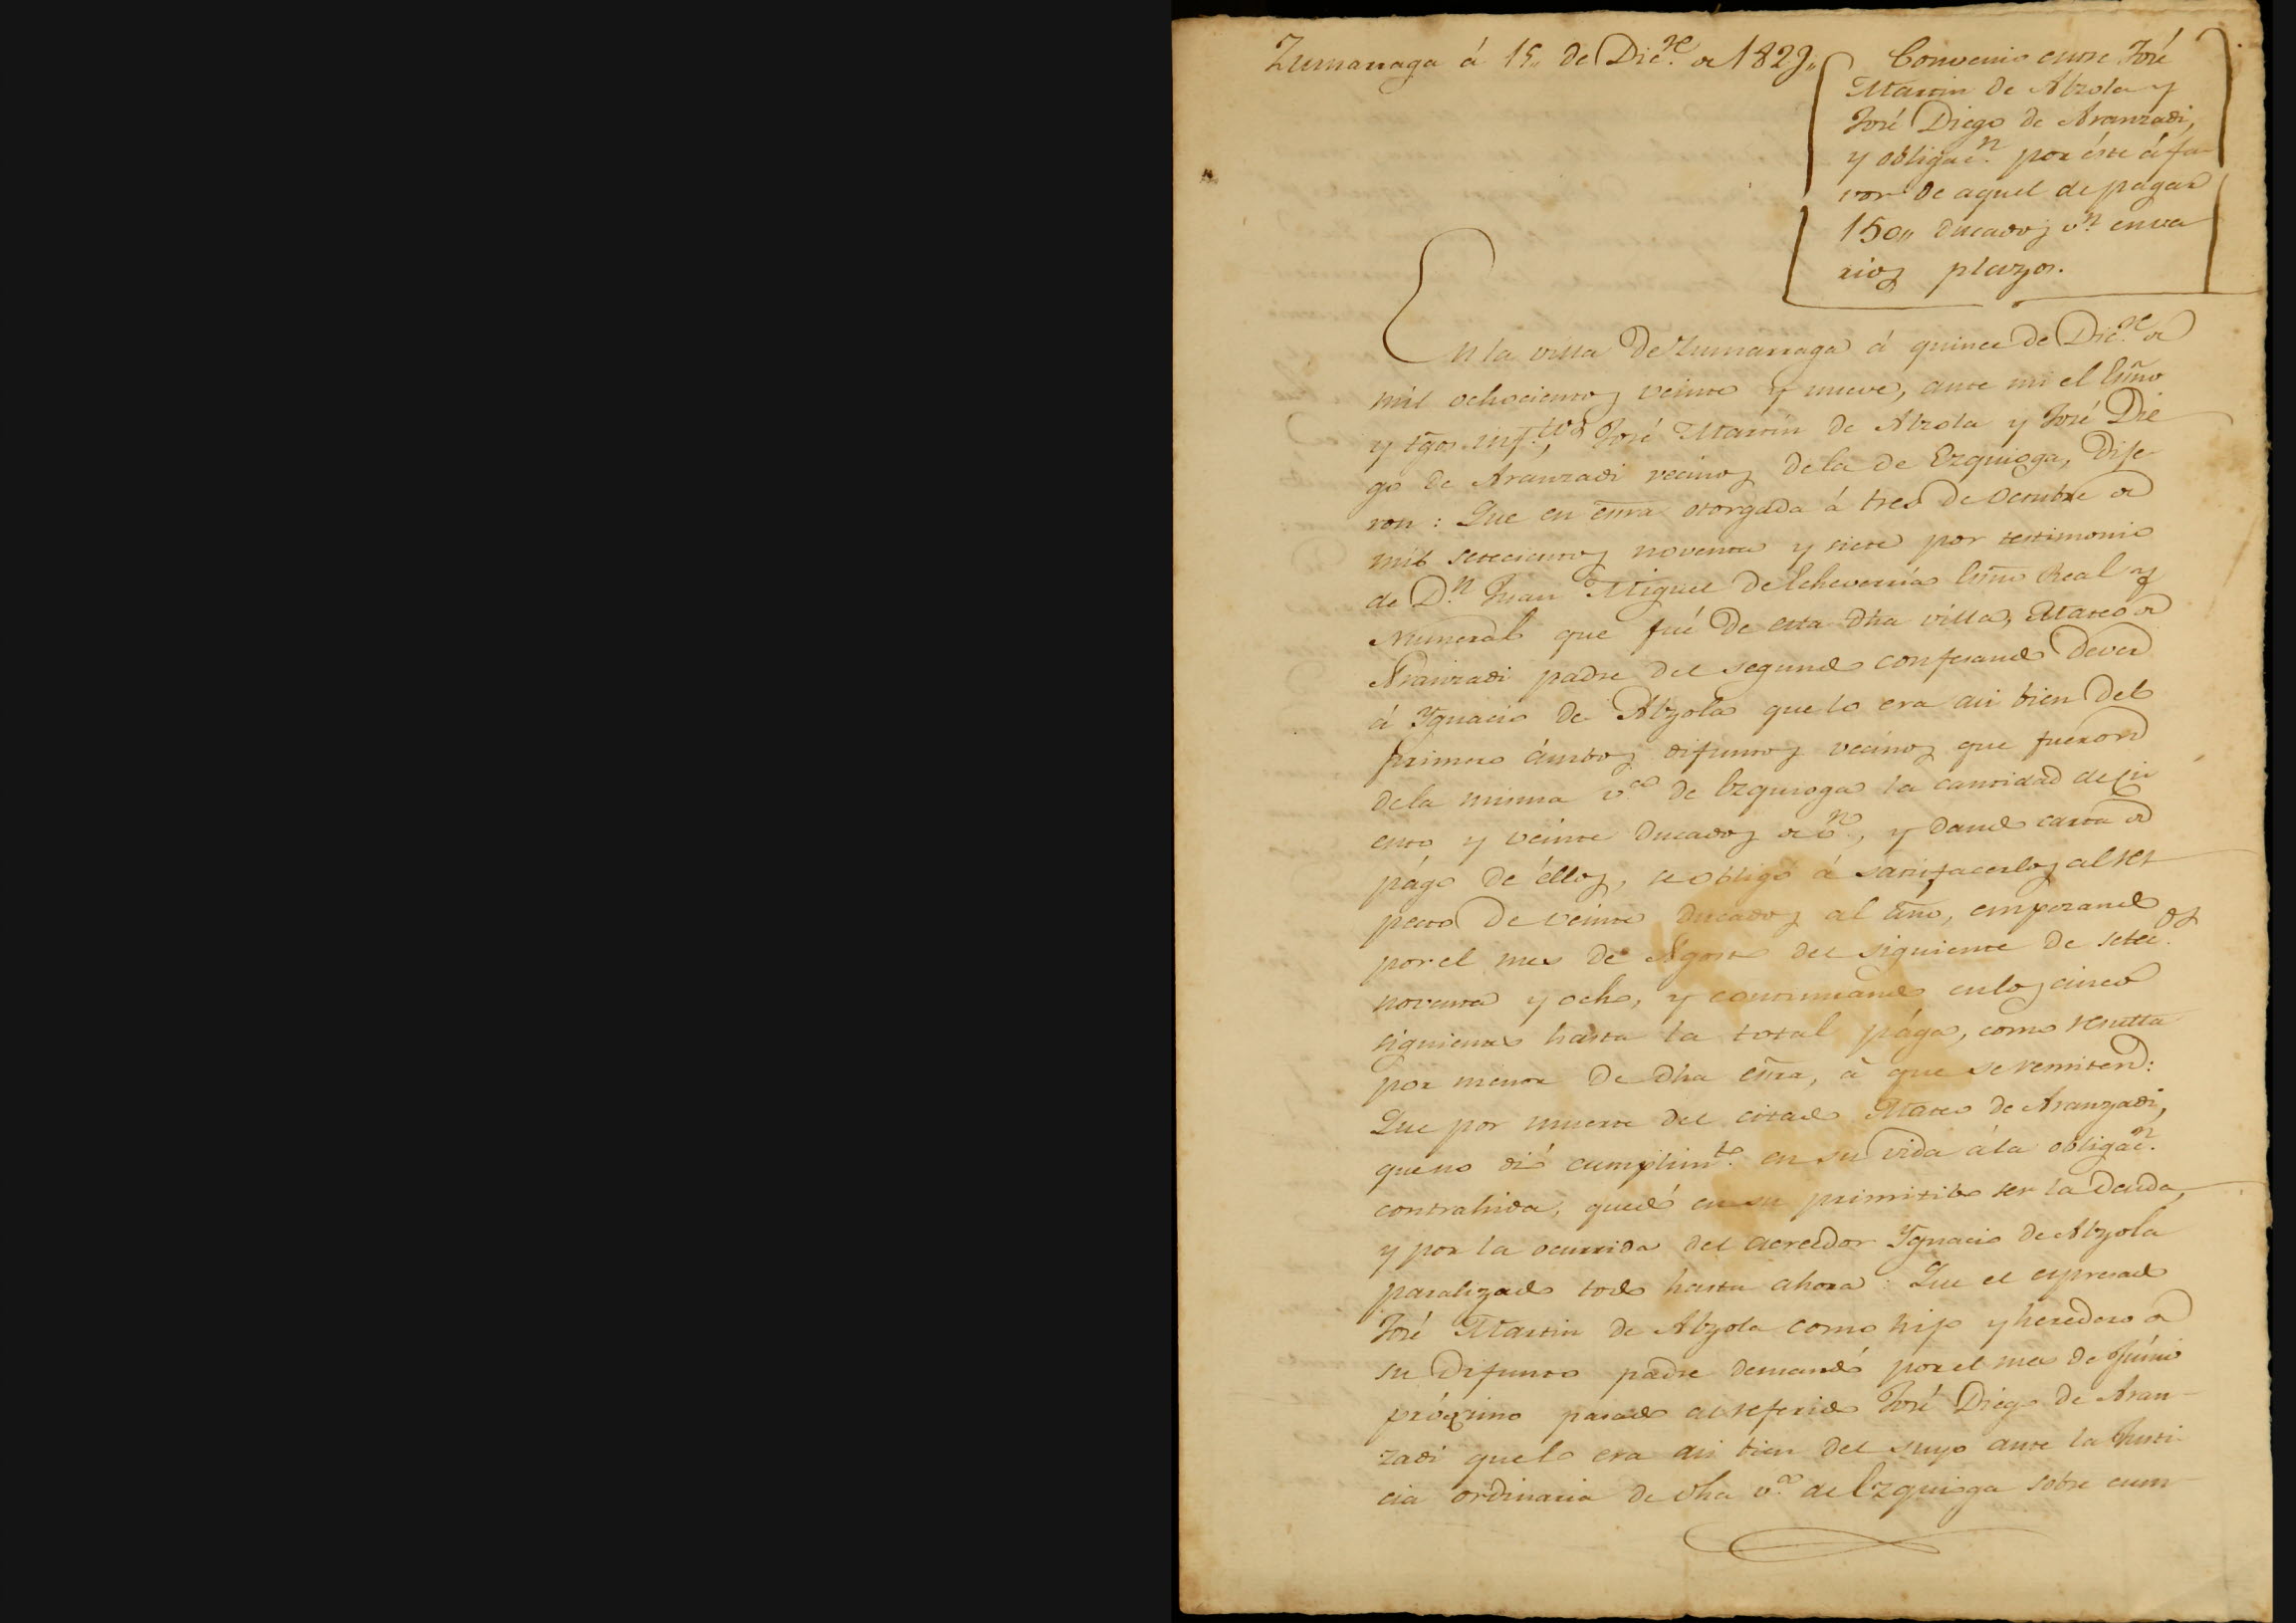 Zumarraga á 15,, de Dic.re de 1829,,
Convenio entre José
Martin de Alzola y
José Diego de Aranzadi,
y obligac.n por éste á fa-
vor de aquel de pagar
150,, ducados v.n en va
rios plazos.
En la villa de Zumarraga á quince de Dic.re de
mil ochocientos veinte y nueve, ante mi el Esñō
y tgōs inf.tos José Martin de Alzola y José Die
go de Aranzadi vecinos de la de Ezquioga, Dije-
ron: Que en esñra otorgada á tres de Octubre de
mil setecientos noventa y siete por testimonio
de D.n Juan Miguel de Echeverria Esñō Real y
Numeral que fué de esta dha villa, Mateo de
Aranzadi padre del segundo confesando dever
á Ygnacio de Alzola que lo era asi bien del
primero ámbos difuntos vecinos que fueron
de la misma v.a de Ezquioga la cantidad de ci
ento y veinte ducados de v.n, y dando carta de
págo de éllos, se obligó á satisfacerlos al res
pecto de veinte ducados al año, empezando
por el mes de Agosto del siguiente de setec.os
noventa y ocho, y continuando en los cinco
siguientes hasta la total pága, como resulta
por menor de dha esñra, á que se remiten:
Que por muerte del citado Mateo de Aranzadi,
que no dió cumplim.to en su vida á la obligac.n
contrahida, quedó en su primitibo ser la deuda,
y por la ocurrida del acreedor Ygnacio de Alzola
paralizado todo hasta ahora: Que el expresado
José Martin de Alzola como hijo y heredero de
su difunto padre demandó por el mes de Júnio
próximo pasado al referido José Diego de Aran-
zadi que lo era asi bien del suyo ante la Justi-
cia ordinaria de dha v.a de Ezquioga sobre cum-